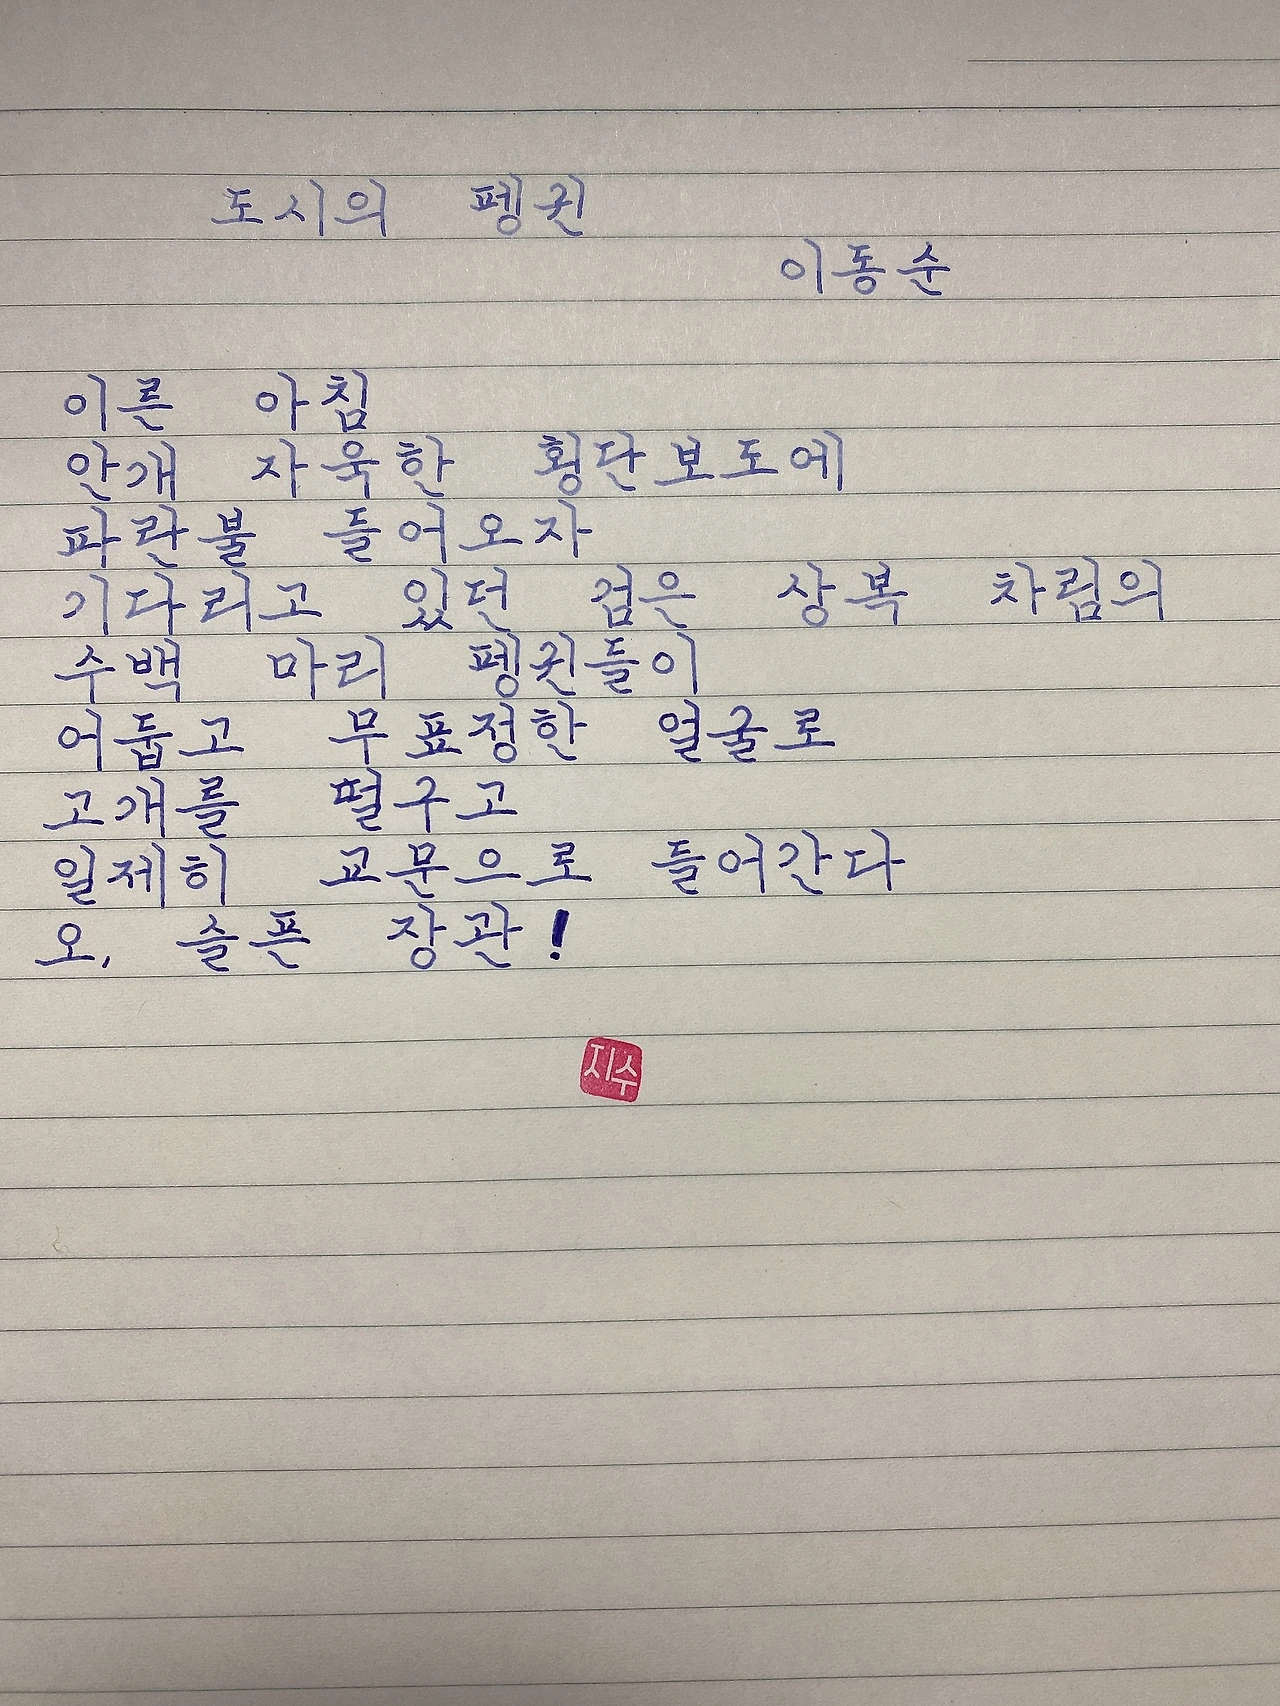 도시의 펭귄
이동순
이른 아침
안개 자욱한 횡단보도에
파란불 들어오자
기다리고 있던 검은 상복 차림의
수백 마리 펭귄들이
어둡고 무표정한 얼굴로
고개를 떨구고
일제히 교문으로 들어간다
오, 슬픈 장관!
지수